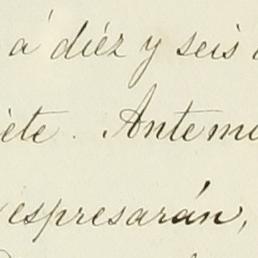 á diéz y seis
iete. Antemi
espresarán,